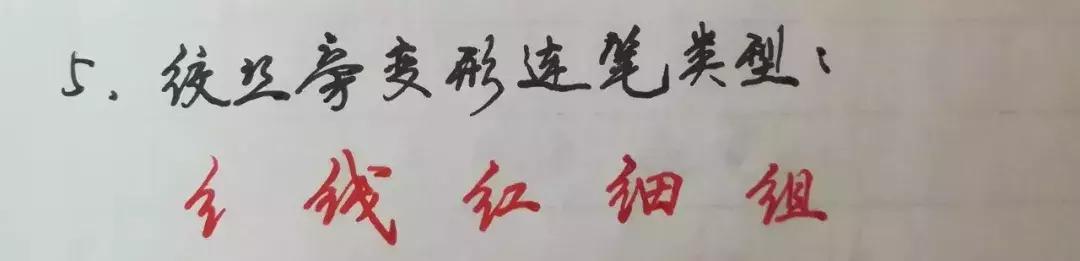 5、绞丝旁变形连笔类型：
纟 线 红 细 组